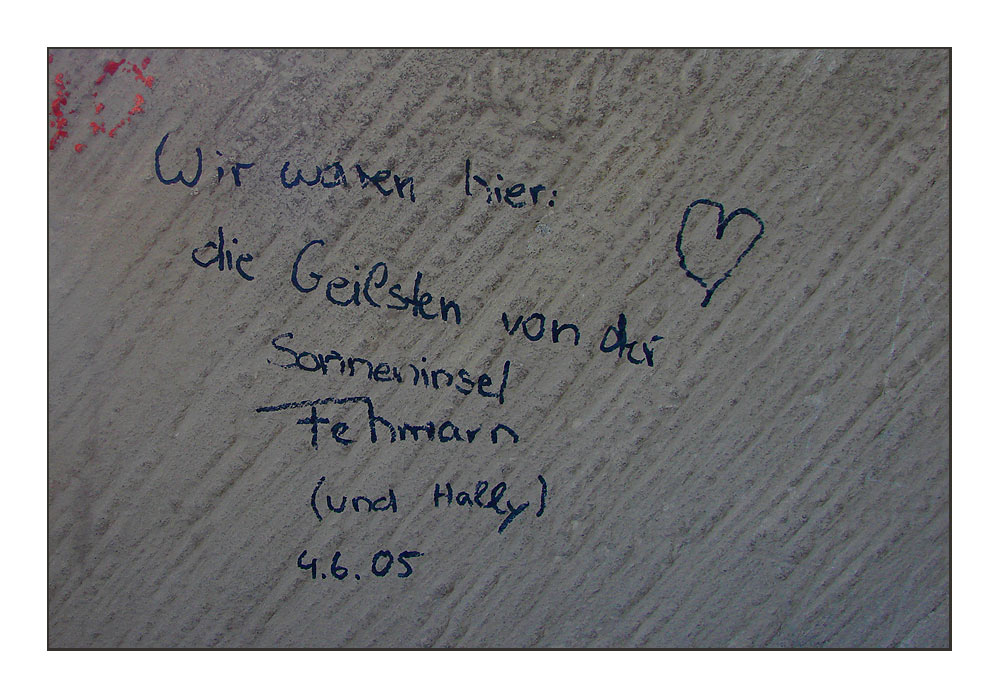 Wir waren hier:
die Geilsten von der
Sonneninsel
Fehmarn
(und Hally)
4.6.05